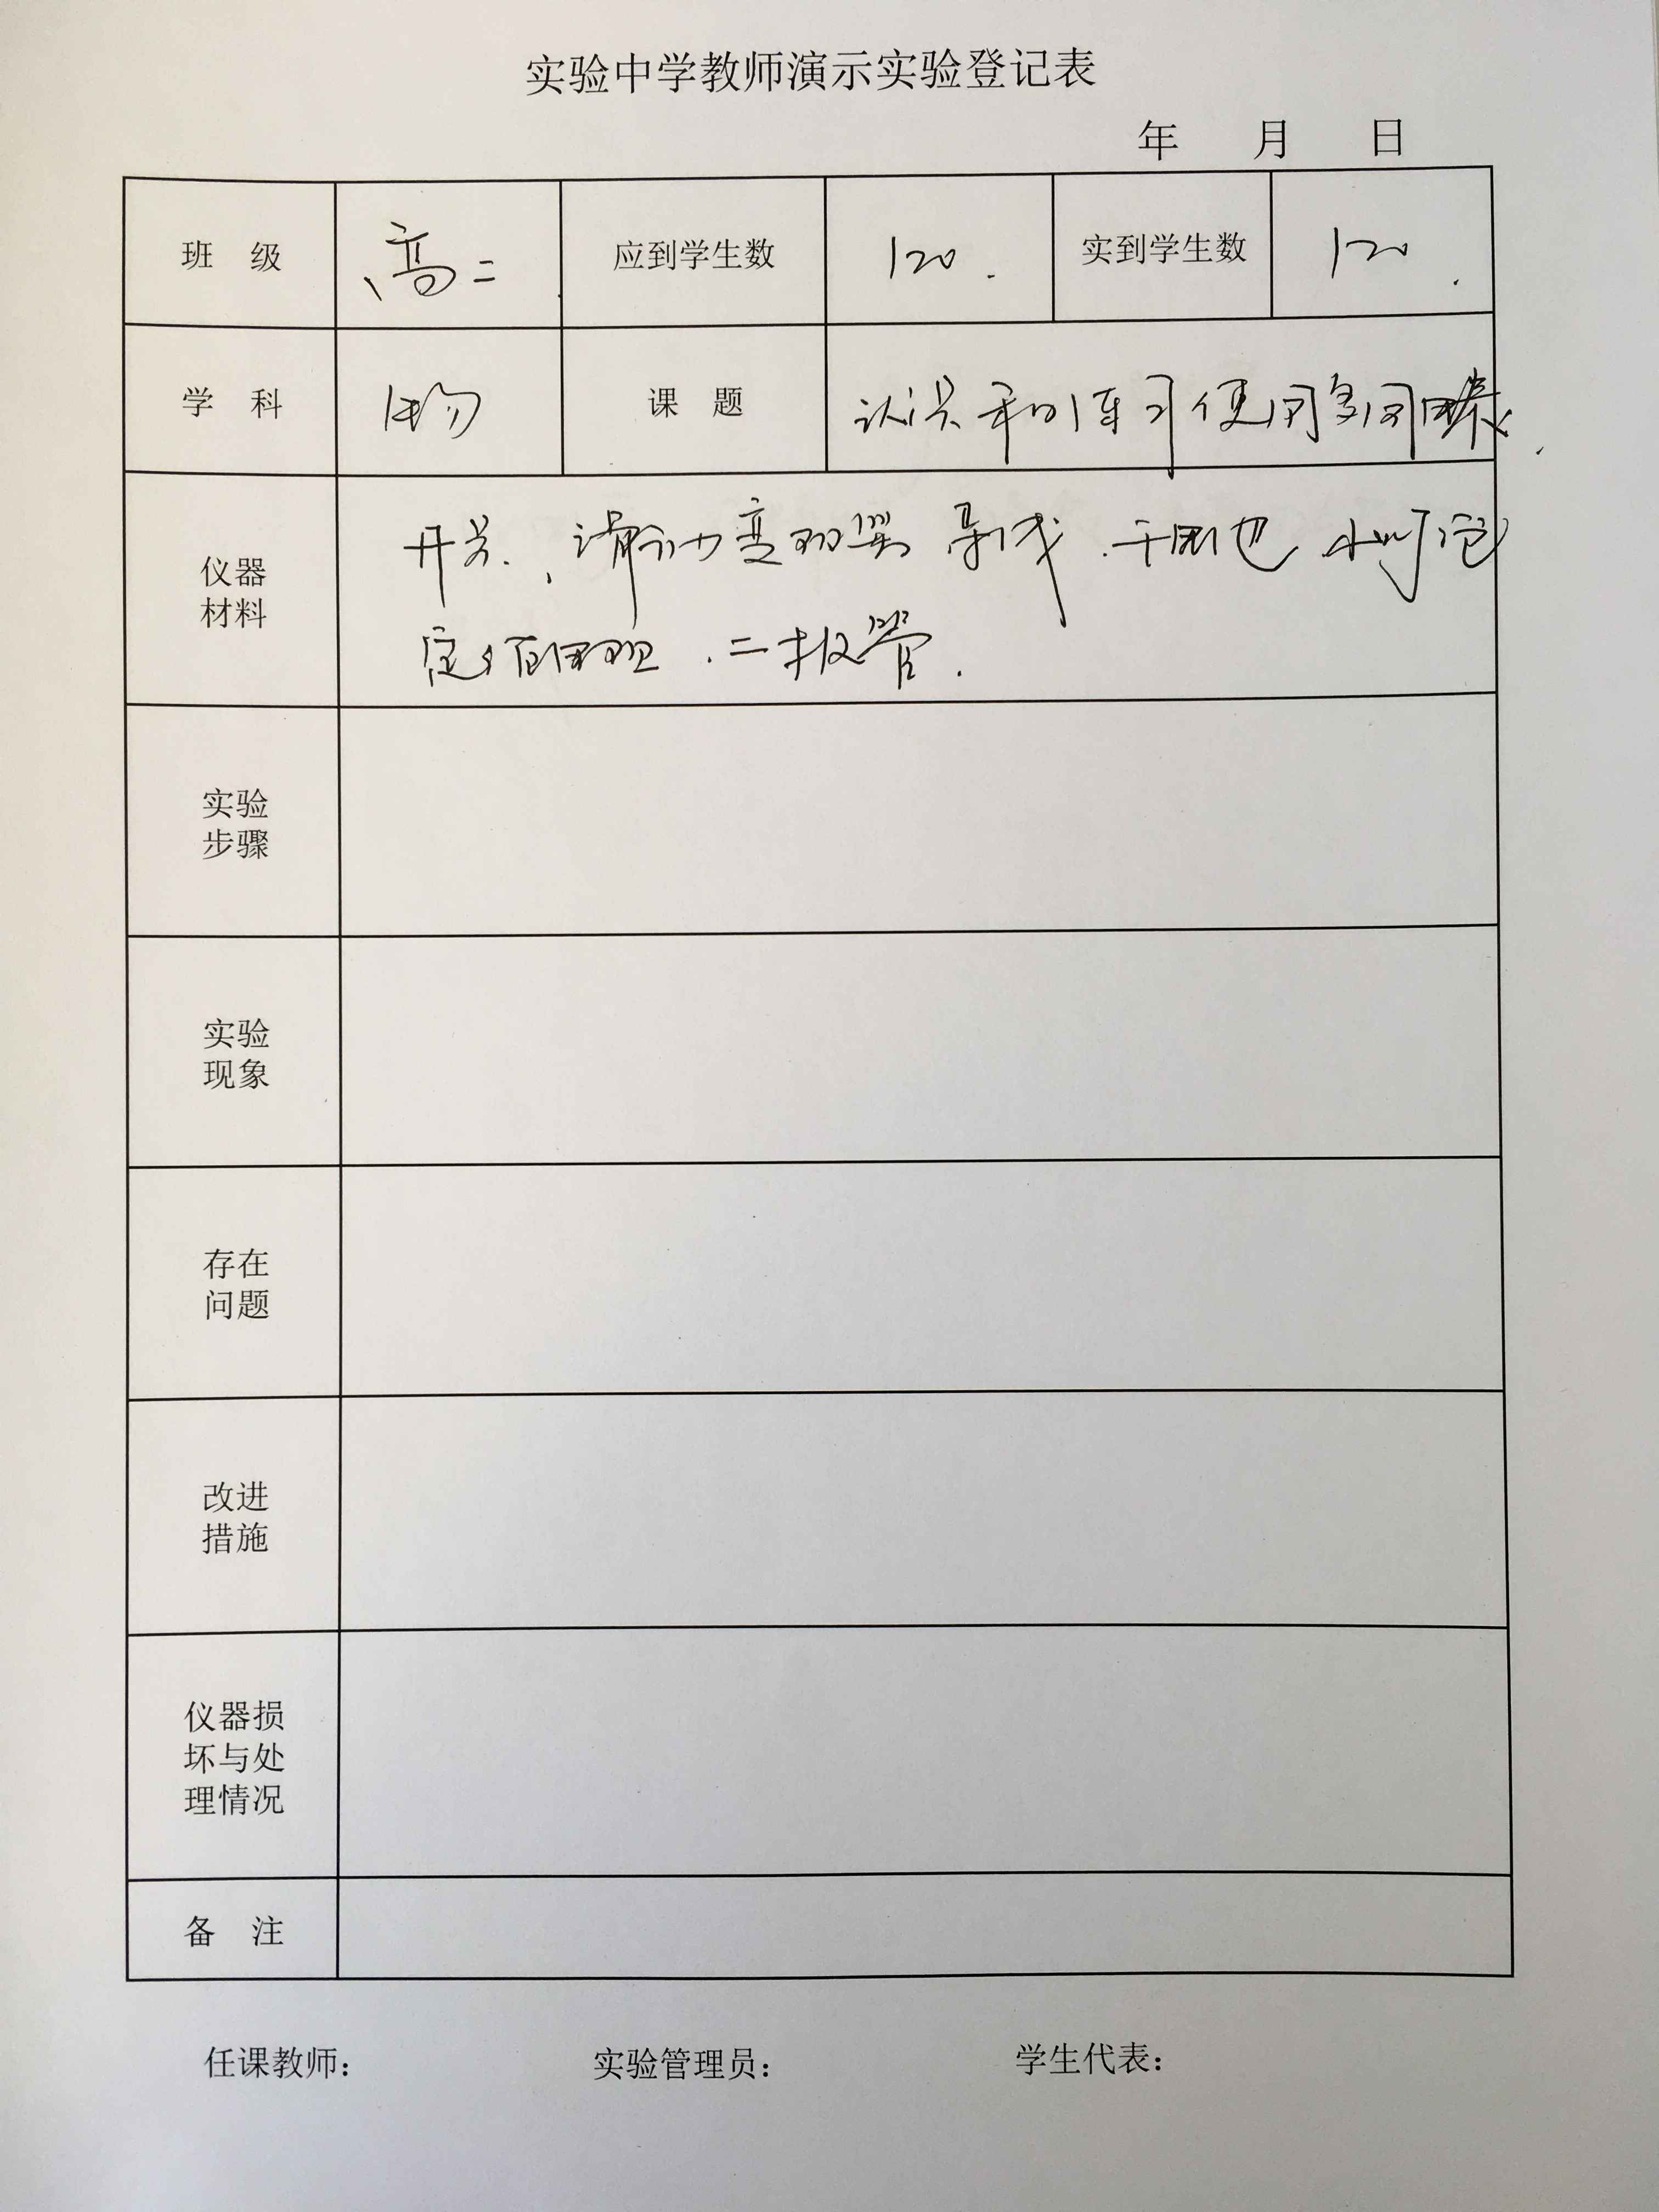 实验中学教师演示实验登记表
年 月 日
班 级 高二 应到学生数 120. 实到学生数 120.
学 科 物 课 题 认识和练习使用多用电表.
仪器
材料
开关、滑动变阻器 导线.干电池 小灯泡
定值电阻.二极管.
实验
步骤
实验
现象
存在
问题
改进
措施
仪器损
坏与处
理情况
备 注
任课教师： 实验管理员： 学生代表：